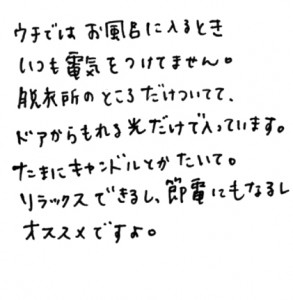 ウチでは お風呂に入るとき
いつも電気をつけてません。
脱衣所のところだけついてて、
ドアからもれる光だけで入っています。
たまにキャンドルとかたいて。
リラックスできるし、節電にもなるし
オススメですよ。